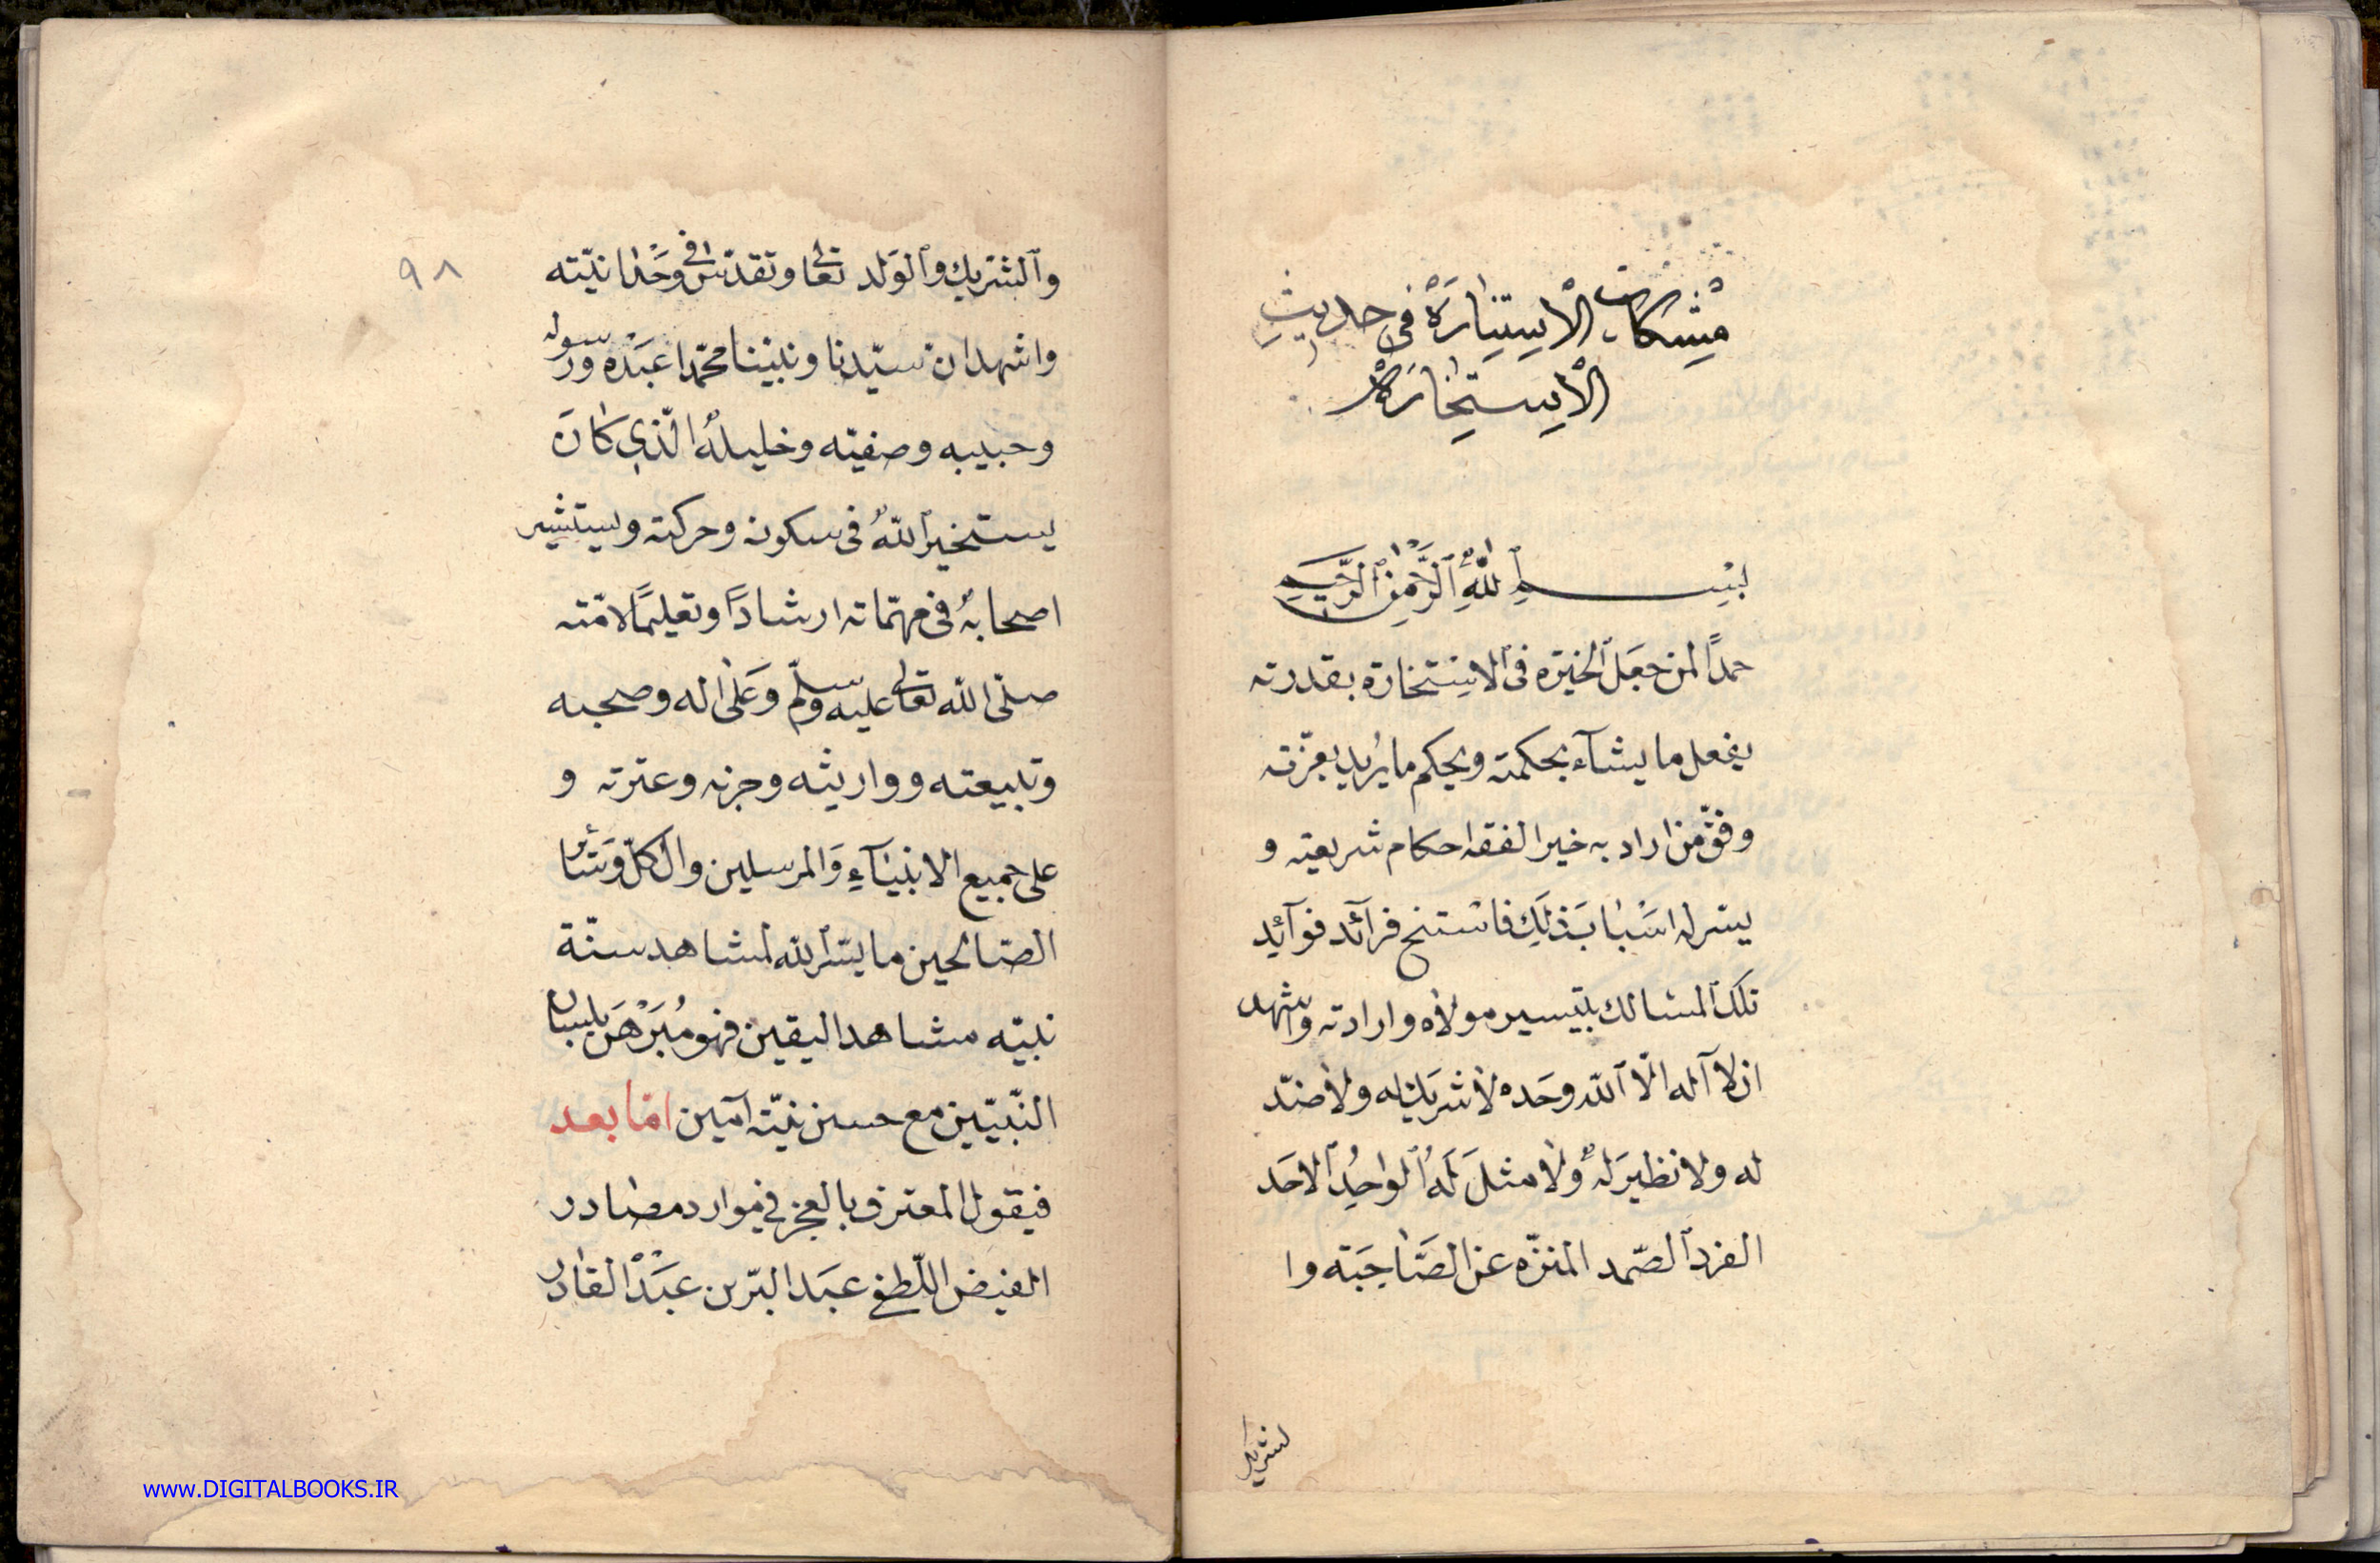 مشكات الاستنارة في حديث
الاستخارة
بسم الله الرحمن الرحيم
حمدًا لمن جعَل الخيرة فى الاستخارة بقدرته
يفعل ما يشآء بحكمته ويحكم ما يُريد بعزّته
وفّق من اراد به خيرا لفقه احكام شريعته و
يسّر له اسْبابَ ذلك فاستنتج فرآئد فوآئِد
تلك المسالك بتيسير مولاه وارادته واشهد
ان لآ اله الّا الله وحَده لا شريك له ولا ضدّ
له ولا نظيرَ لهُ ولا مثلَ لَهُ الواحِدُ الاحَد
الفرد الصّمد المنزّه عن الصَّاحِبَة وا
لشريك
٩٨
والشريك والوَلد تعالى وتقدّس فى وحْدانيّته
واشهد ان سيّدنا ونبيّنا محمّدا عبَدْه ورسوله
وحبيبه وصفيّه وخليلهُ الّذي كانَ
يستخير اللهَ فى سكونه وحركته ويستشير
اصحابهُ فى مهمّاته ارشادًا وتعليمًا لامّته
صلّى الله تعالى عليه وسلّم وعَلى اله وصحبه
وتبيعته ووارِيثه وحزبه وعترته و
على جميع الانبيآءِ وَالمرسلين وال كلّ وسَائر
الصّالحين ما يسّر الله لمشاهد سنّة
نبيّه مشاهد اليقين فهو مُبَرْهَن بلسان
النّبيّين مع حسن نيّته آمين امّا بعد
فيقول المعترف بالعجز في موارد مصَادر
الفيض اللّطفي عبَد البرّ بن عبَدْ القادر
www.DIGITALBOOKS.IR